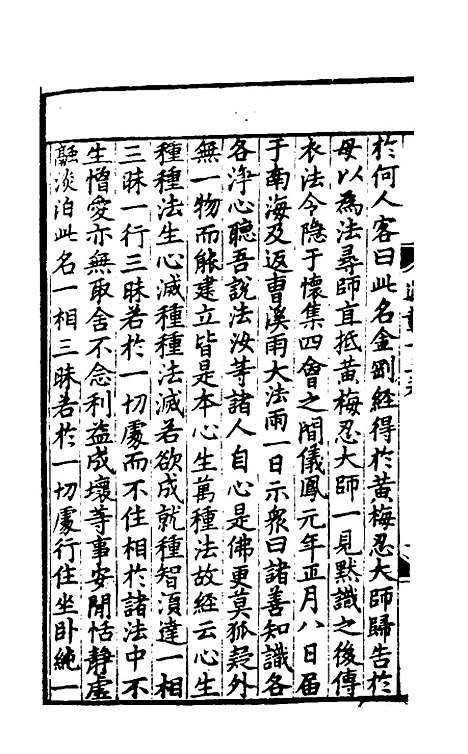 於何人客曰此名金剛經得於黃梅忍大師歸告於
母以為法尋師直抵黃梅忍大師一見默識之後傳
衣法令隱于懷集四會之間儀鳳元年正月八日屆
于南海及返曹溪雨大法雨一日示衆曰諸善知識各
各淨心聽吾說法汝等諸人自心是佛更莫狐疑外
無一物而能建立皆是本心生萬種法故經云心生
種種法生心滅種種法滅若欲成就種智須達一相
三昧一行三昧若於一切處而不住相於諸法中不
生憎愛亦無取舍不念利益成壞等事安閒恬靜虛
融淡泊此名一相三昧若於一切處行住坐卧純一